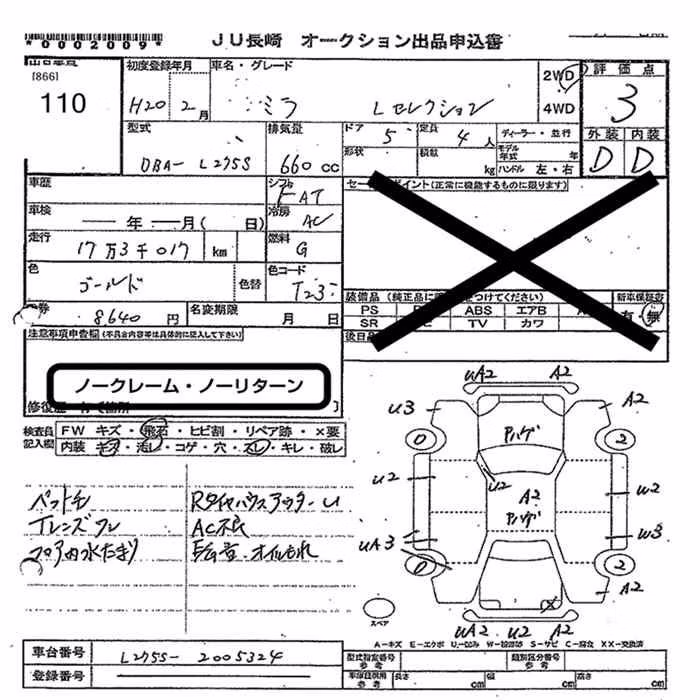 *0002009*
JU長崎 オークション出品申込書
[866]
110
初度登録年月
H20 2月
車名・グレード
ミラ Lセレクション
2WD
4WD
評価点
3
外装 内装
D D
型式
DBA- L275S
排気量
660 cc
ドア 5
定員 4人
ディーラー・並行
形状
積数
kg
モデル年式 年
ハンドル 左・右
車歴
シフト
FAT
セールスポイント(正常に機能するものに限ります)
車検
年 月( 日)
冷房
AC
走行
17万3千017 km
燃料
G
色
ゴールド
色替
色コード
T23
装備品(純正品に
をつけてください)
新車保証書
PS
ABS
エアB
有・無
SR
TV
カワ
券
8,640円
名変期限
月 日
注意事項申告欄(不具合内容等は具体的に記入して下さい)
ノークレーム・ノーリターン
検査員記入欄
FW キズ・飛石・ヒビ割・リペア跡・×要
内装 キズ・汚レ・コゲ・穴・スレ・キレ・破レ
AC不良
オイルもれ
UA2 A2
U3 A2
0 2
Aハゲ
U2
U2 W2
A2
Aハゲ
UA3 W3
0 2
A2
X
スペア
UA2 U2 A2
A-キズ E-エクボ U-凹み W-補修跡 S-サビ C-腐食 XX-交換済
車台番号
L275S- 2005324
登録番号
型式指定番号 参考
類別区分番号 参考
長さ cm
幅 cm
高さ cm